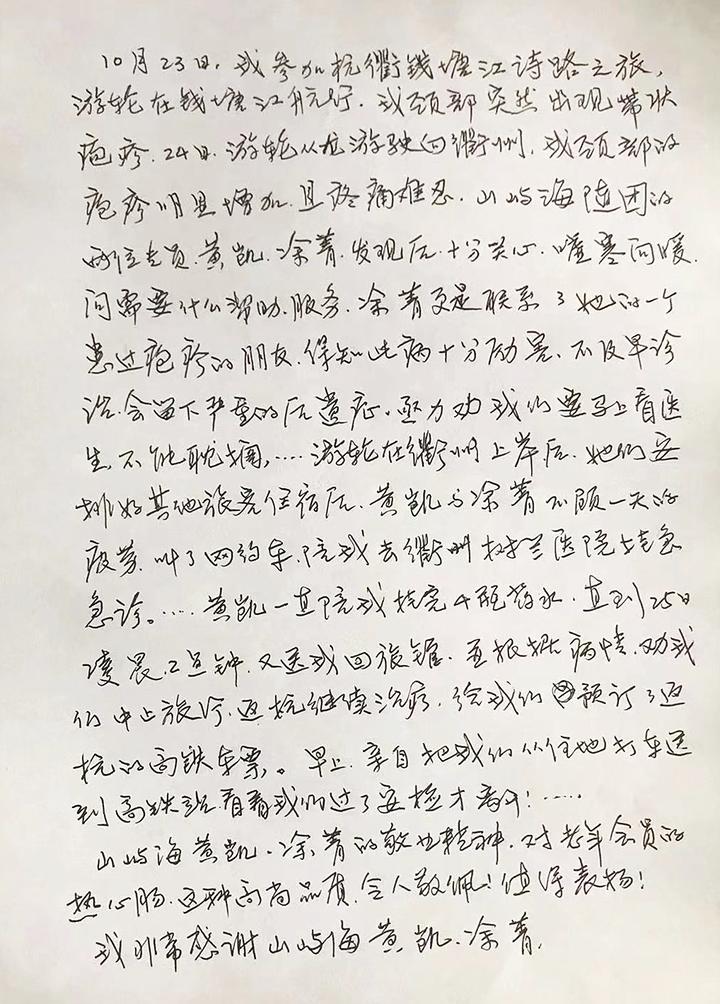 10月23日，我参加杭衢钱塘江诗路之旅，
游轮在钱塘江航行，我颈部突然出现带状
疱疹．24日，游轮从龙游驶向衢州，我颈部的
疱疹明显增加，且疼痛难忍．山屿海随团的
两位专员，黄凯、涂菁，发现后，十分关心，嘘寒问暖，
问需要什么帮助、服务．涂菁更是联系了她的一个
患过疱疹的朋友，得知此病十分厉害，不及早诊
治会留下严重的后遗症，极力劝我们要马上看医
生，不能耽搁，……游轮在衢州上岸后，她们安
排好其他旅客住宿后，黄凯与涂菁不顾一天的
疲劳，叫了网约车，陪我去衢州树兰医院去急
急诊。……黄凯一直陪我挂完4瓶药水，直到25日
凌晨，2点钟，又送我回旅馆，并根据病情，劝我
们中止旅游，返杭继续治疗，给我们预订了返
杭的高铁车票。早上，亲自把我们从住地打车送
到高铁站，看着我们过了安检才离开！……
山屿海黄凯、涂菁的敬业精神，对老年会员的
热心肠，这种高尚品质，令人敬佩！值得表扬！
我非常感谢山屿海黄凯、涂菁．